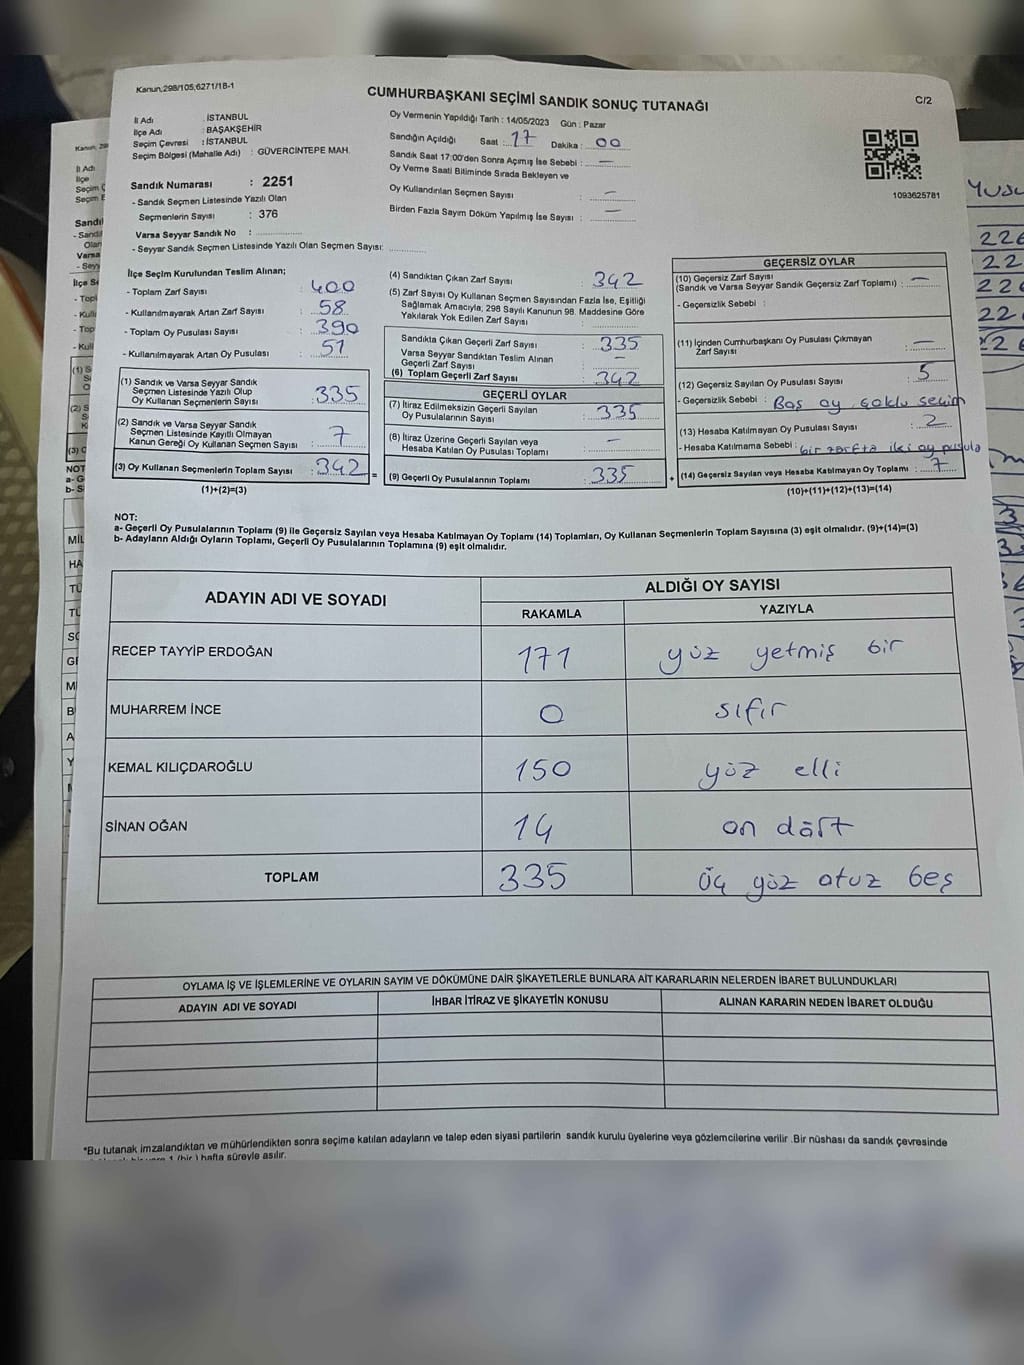 Kanun,298/105;6271/18-1
CUMHURBAŞKANI SEÇİMİ SANDIK SONUÇ TUTANAĞI
C/2
İl Adı : İSTANBUL
İlçe Adı : BAŞAKŞEHİR
Seçim Çevresi : İSTANBUL
Seçim Bölgesi (Mahalle Adı) : GÜVERCİNTEPE MAH.
Sandık Numarası : 2251
- Sandık Seçmen Listesinde Yazılı Olan
Seçmenlerin Sayısı : 376
Varsa Seyyar Sandık No :
- Seyyar Sandık Seçmen Listesinde Yazılı Olan Seçmen Sayısı:
Oy Vermenin Yapıldığı Tarih : 14/05/2023 Gün : Pazar
Sandığın Açıldığı Saat : 17 Dakika : 00
Sandık Saat 17:00'den Sonra Açımış İse Sebebi : —
Oy Verme Saati Bitiminde Sırada Bekleyen ve
Oy Kullandırılan Seçmen Sayısı : —
Birden Fazla Sayım Döküm Yapılmış İse Sayısı : —
1093625781
İlçe Seçim Kurulundan Teslim Alınan;
- Toplam Zarf Sayısı : 400
- Kullanılmayarak Artan Zarf Sayısı : 58
- Toplam Oy Pusulası Sayısı : 390
- Kullanılmayarak Artan Oy Pusulası : 51
(1) Sandık ve Varsa Seyyar Sandık
Seçmen Listesinde Yazılı Olup
Oy Kullanan Seçmenlerin Sayısı : 335
(2) Sandık ve Varsa Seyyar Sandık
Seçmen Listesinde Kayıtlı Olmayan
Kanun Gereği Oy Kullanan Seçmen Sayısı : 7
(3) Oy Kullanan Seçmenlerin Toplam Sayısı : 342 =
(1)+(2)=(3)
(4) Sandıktan Çıkan Zarf Sayısı : 342
(5) Zarf Sayısı Oy Kullanan Seçmen Sayısından Fazla İse, Eşitliği
Sağlamak Amacıyla, 298 Sayılı Kanunun 98. Maddesine Göre
Yakılarak Yok Edilen Zarf Sayısı :
Sandıkta Çıkan Geçerli Zarf Sayısı : 335
Varsa Seyyar Sandıktan Teslim Alınan
Geçerli Zarf Sayısı : —
(6) Toplam Geçerli Zarf Sayısı : 342
GEÇERLİ OYLAR
(7) İtiraz Edilmeksizin Geçerli Sayılan
Oy Pusulalarının Sayısı : 335
(8) İtiraz Üzerine Geçerli Sayılan veya
Hesaba Katılan Oy Pusulası Toplamı : —
(9) Geçerli Oy Pusulalarının Toplamı : 335 +
GEÇERSİZ OYLAR
(10) Geçersiz Zarf Sayısı
(Sandık ve Varsa Seyyar Sandık Geçersiz Zarf Toplamı) : —
- Geçersizlik Sebebi :
(11) İçinden Cumhurbaşkanı Oy Pusulası Çıkmayan
Zarf Sayısı : —
(12) Geçersiz Sayılan Oy Pusulası Sayısı : 5
- Geçersizlik Sebebi : Boş oy, çoklu seçim
(13) Hesaba Katılmayan Oy Pusulası Sayısı : 2
- Hesaba Katılmama Sebebi : bir zarfta iki oy pusula
(14) Geçersiz Sayılan veya Hesaba Katılmayan Oy Toplamı : 7
(10)+(11)+(12)+(13)=(14)
NOT:
a- Geçerli Oy Pusulalarının Toplamı (9) ile Geçersiz Sayılan veya Hesaba Katılmayan Oy Toplamı (14) Toplamları, Oy Kullanan Seçmenlerin Toplam Sayısına (3) eşit olmalıdır. (9)+(14)=(3)
b- Adayların Aldığı Oyların Toplamı, Geçerli Oy Pusulalarının Toplamına (9) eşit olmalıdır.
ADAYIN ADI VE SOYADI
ALDIĞI OY SAYISI
RAKAMLA YAZIYLA
RECEP TAYYİP ERDOĞAN 171 yüz yetmiş bir
MUHARREM İNCE 0 sıfır
KEMAL KILIÇDAROĞLU 150 yüz elli
SİNAN OĞAN 14 on dört
TOPLAM 335 üç yüz otuz beş
OYLAMA İŞ VE İŞLEMLERİNE VE OYLARIN SAYIM VE DÖKÜMÜNE DAİR ŞİKAYETLERLE BUNLARA AİT KARARLARIN NELERDEN İBARET BULUNDUKLARI
ADAYIN ADI VE SOYADI İHBAR İTİRAZ VE ŞİKAYETİN KONUSU ALINAN KARARIN NEDEN İBARET OLDUĞU
*Bu tutanak imzalandıktan ve mühürlendikten sonra seçime katılan adayların ve talep eden siyasi partilerin sandık kurulu üyelerine veya gözlemcilerine verilir .Bir nüshası da sandık çevresinde
1 (bir ) hafta süreyle asılır.